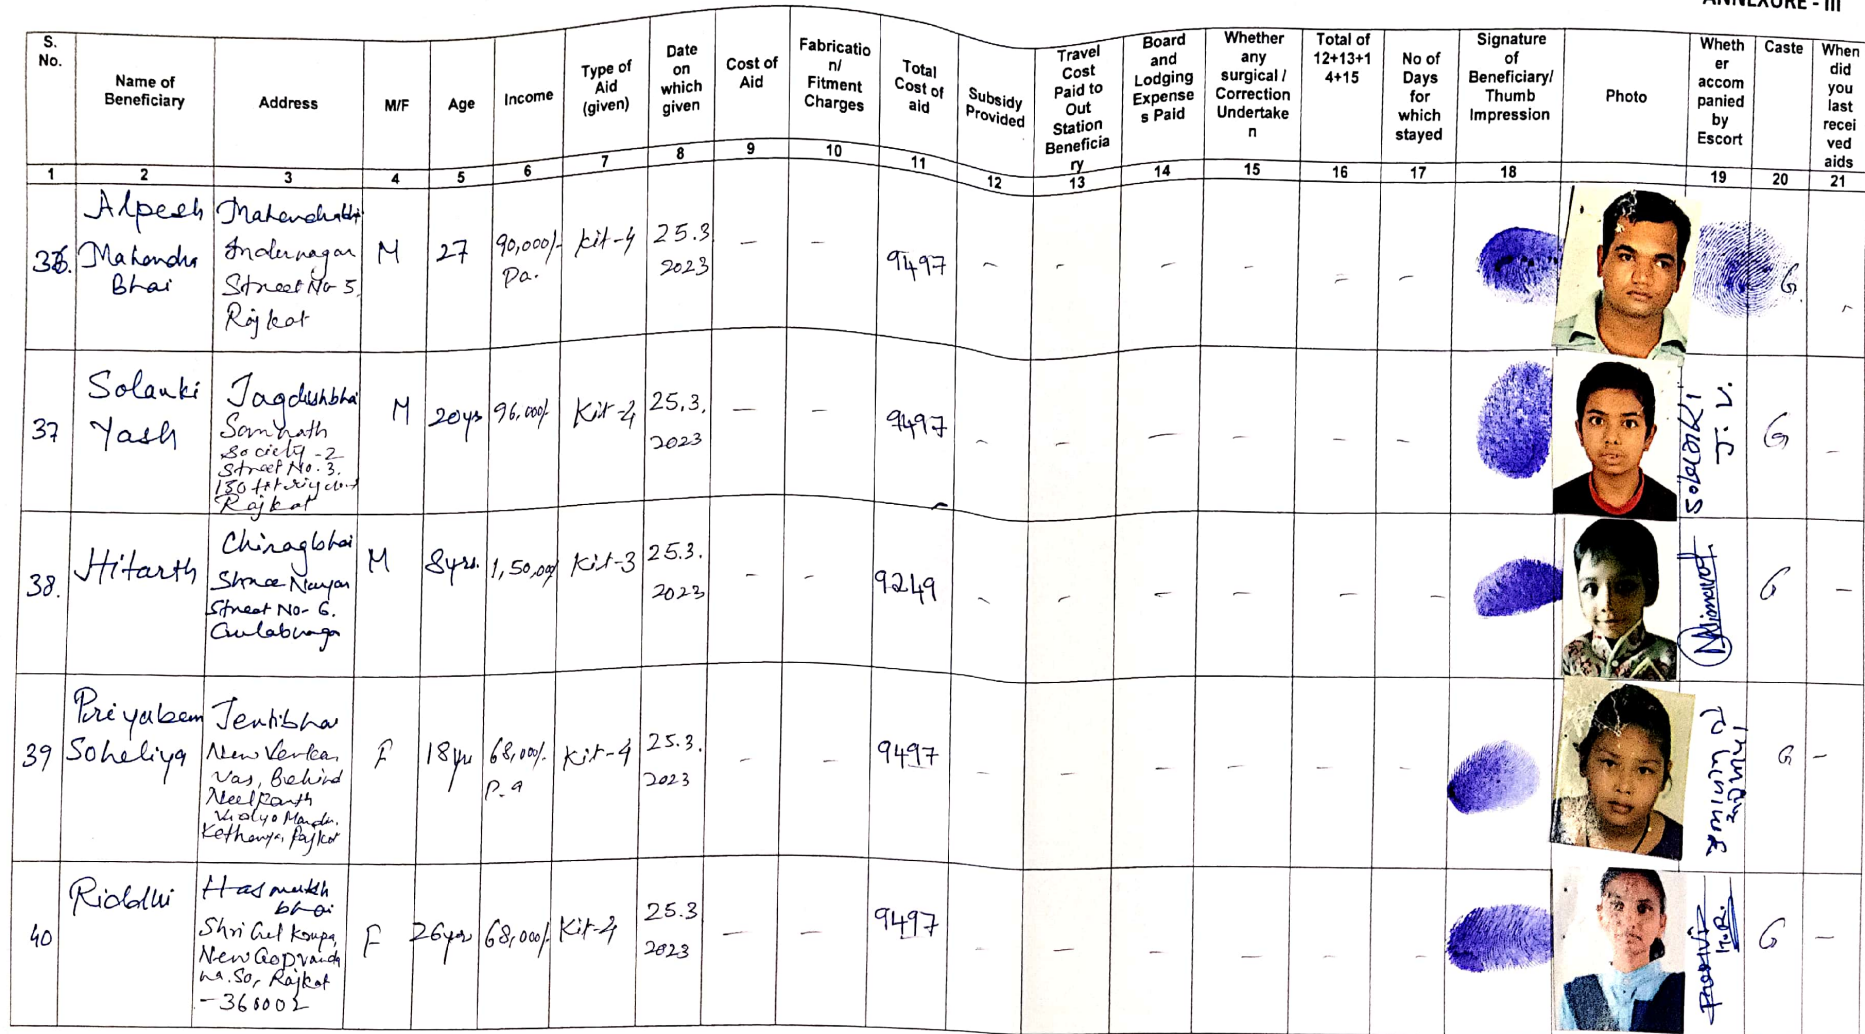 ANNEXURE - III
S. No.
Name of Beneficiary
Address
M/F
Age
Income
Type of Aid (given)
Date on which given
Cost of Aid
Fabricatio n/ Fitment Charges
Total Cost of aid
Subsidy Provided
Travel Cost Paid to Out Station Beneficia ry
Board and Lodging Expense s Paid
Whether any surgical / Correction Undertake n
Total of 12+13+1 4+15
No of Days for which stayed
Signature of Beneficiary/ Thumb Impression
Photo
Wheth er accom panied by Escort
Caste
When did you last recei ved aids
1 2 3 4 5 6 7 8 9 10 11 12 13 14 15 16 17 18 19 20 21
36.
Alpesh
Mahendra
Bhai
Indernagar
Street No 5
Rajkot
M
27
90,000/-
Pa.
Kit-4
25.3
2023
–
–
9497
–
–
–
–
–
–
G
–
37
Solanki
Yash
Jagdishbhai
Somnath
Society-2
Street No. 3.
Rajkot
M
20yrs
96,000/-
Kit-4
25.3.
2023
–
–
9497
–
–
–
–
–
–
Solanki
J. V.
G
–
38.
Hitarth
Chiragbhai
Street No- 6.
M
8yrs.
1,50,000/
Kit-3
25.3.
2023
–
–
9249
–
–
–
–
–
–
G
–
39
Priyaben
Soheliya
Jentibhai
Vas, Behind
Neelkanth
Rajkot
F
18yrs
68,000/-
P.a
Kit-4
25.3.
2023
–
–
9497
–
–
–
–
–
–
G
–
40
Riddhi
Hasmukh
bhai
Rajkot
-360002
F
26yrs
68,000/-
Kit-4
25.3
2023
–
–
9497
–
–
–
–
–
–
H.R.
G
–